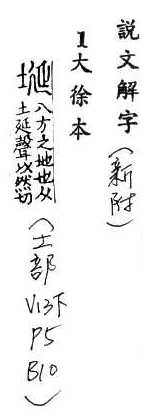 說文解字(新附)
1大徐本
埏 八方之地也从
土延聲以然切
(土部
V13下
P5
B10)